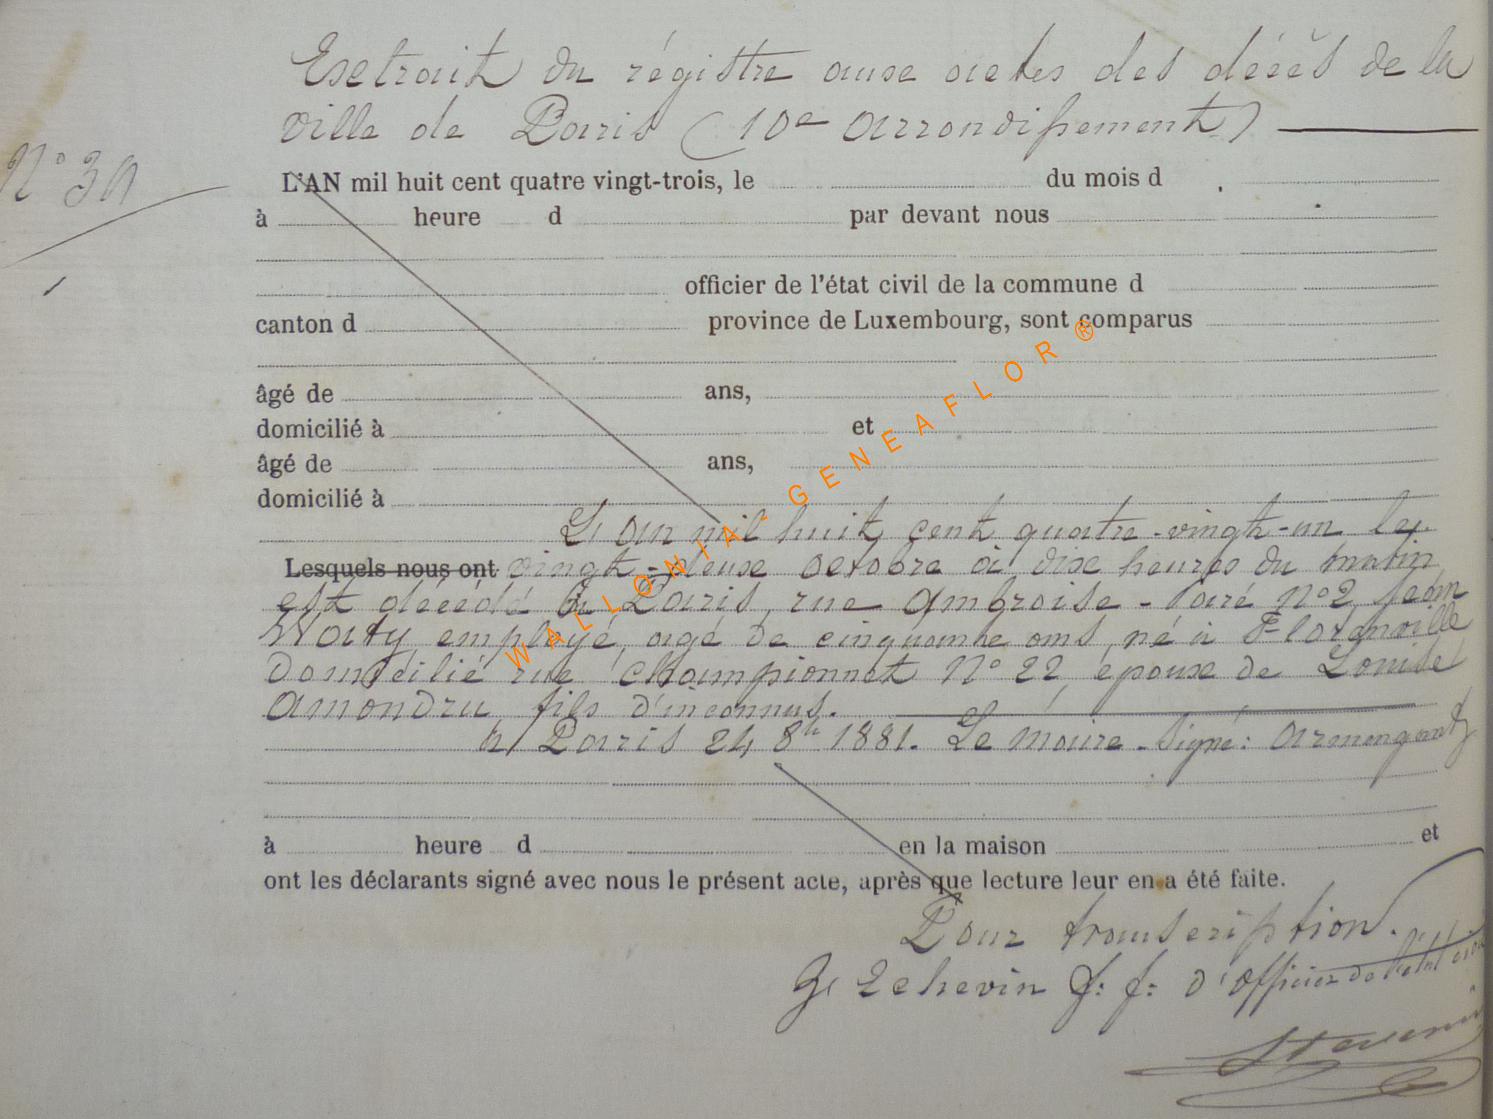 Extrait du régistre aux actes des décès de la
ville de Paris (10e arrondissement)
N° 39
L'AN mil huit cent quatre vingt-trois, le du mois d
à heure d par devant nous
officier de l'état civil de la commune d
canton d province de Luxembourg, sont comparus
âgé de ans,
domicilié à et
âgé de ans,
domicilié à
L'an mil huit cent quatre-vingt-un le
Lesquels nous ont vingt-deux octobre à dix heures du matin
est décédé à Paris, rue Ambroise-Paré N°2, Jean
Waty employé, agé de cinquante ans, né à Florenville
domicilié rue Championnet N° 22, epoux de Louise
Amondru fils d'inconnus.
à Paris 24 8bre 1881. Le maire. Signé: Armengaut
à heure d en la maison et
ont les déclarants signé avec nous le présent acte, après que lecture leur en a été faite.
Pour transcription.
L'Echevin f: f: d'Officier de l'état civil
WALLONIA-GENEAFLOR®